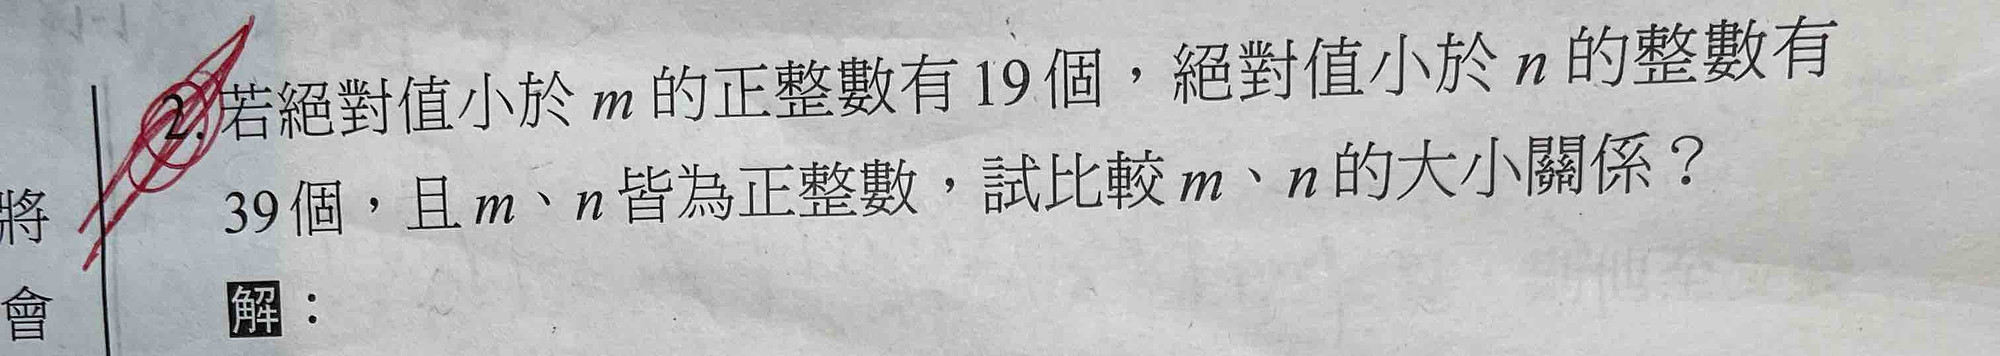 2.若絕對值小於 m 的正整數有 19 個,絕對值小於 n 的整數有
39 個,且 m、n 皆為正整數,試比較 m、n 的大小關係?
將
會
解: